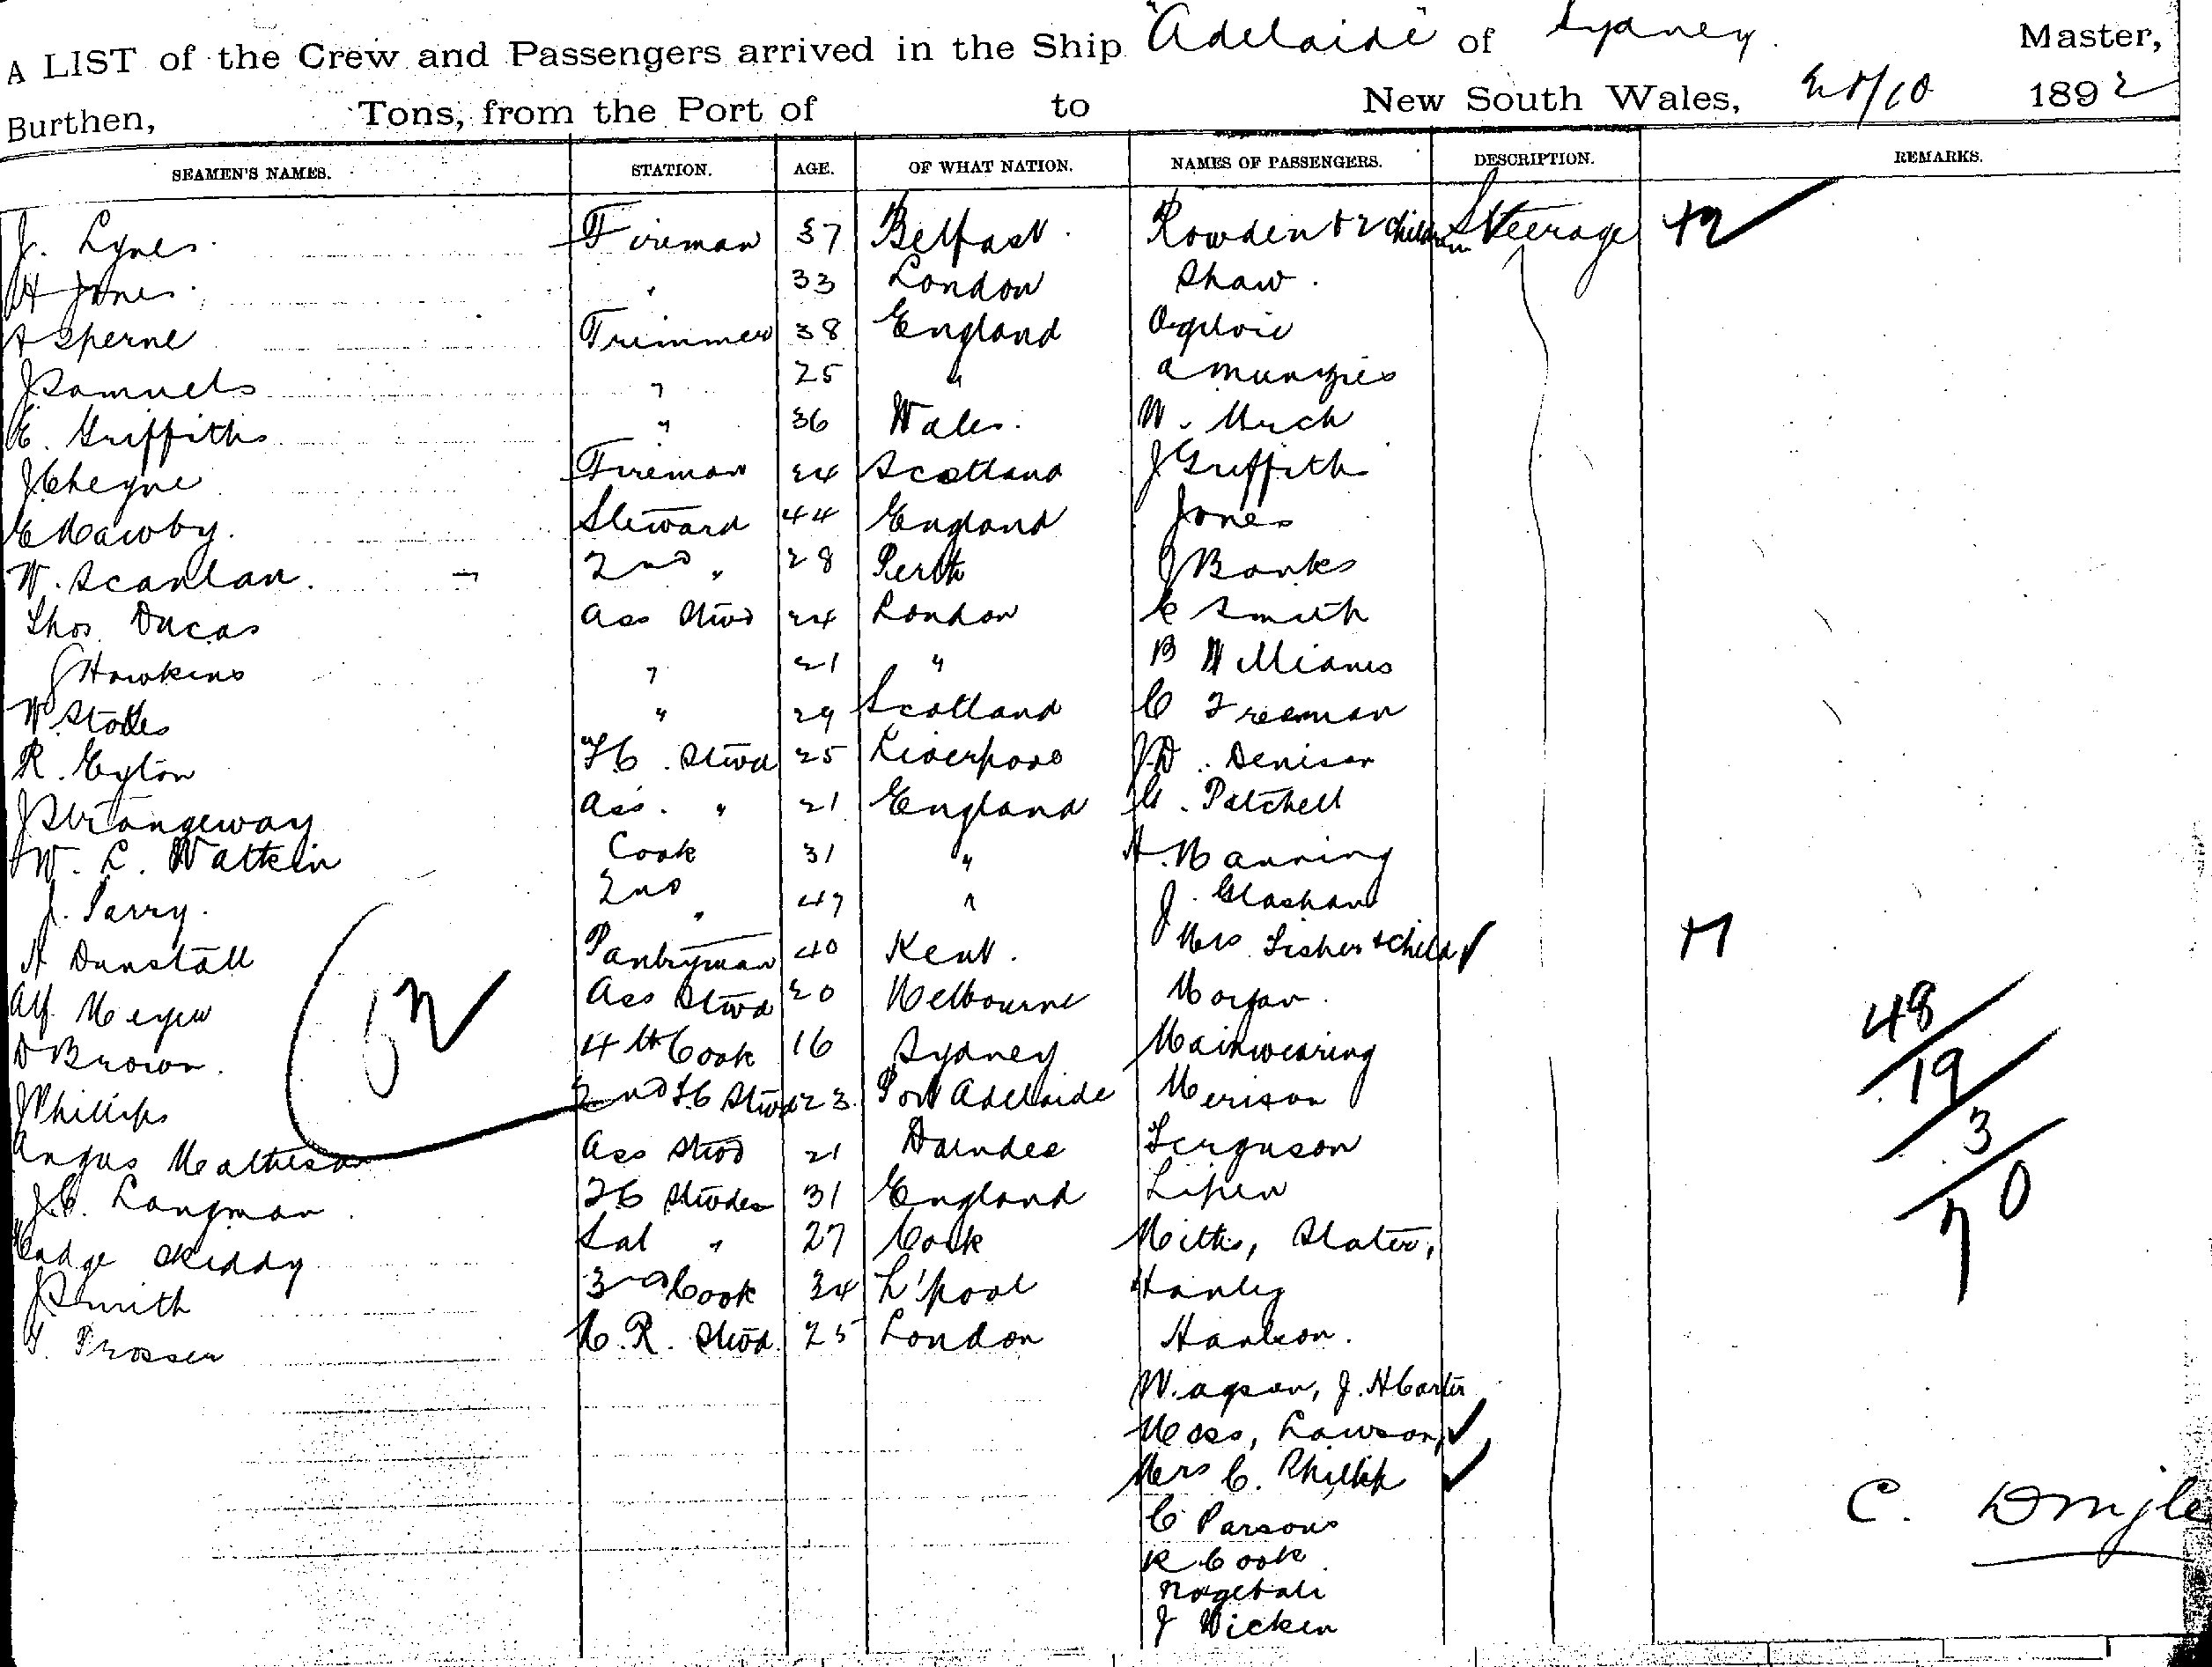 A LIST of the Crew and Passengers arrived in the Ship "Adelaide" of Sydney. Master,
Burthen, Tons, from the Port of to New South Wales, 1892
SEAMEN'S NAMES. STATION. AGE. OF WHAT NATION. NAMES OF PASSENGERS. DESCRIPTION. REMARKS.
J. Lynes Fireman 37 Belfast. Rowden & 2 Children Steerage
H Jones " 33 London Shaw.
A Sperne Trimmer 38 England Ogilvie
J Samuels " 25 " A Munzies
E. Griffiths " 36 Wales. W. Urch
J Cheyne Fireman 24 Scotland J Griffith
E Mawby. Steward 44 England Jones
W. Scanlan. 2nd " 28 Perth J Banks
Thos Ducas Ass Stwd 24 London Smith
J Hawkins " 21 " B Williams
W Stokes " 29 Scotland C Freeman
R. Eyton Stwd 25 Liverpool J.D. Denison
J Strangeway Ass. " 21 England G. Patchell
W. L. Watkin Cook 31 " A. Manning
J. Parry. 2nd " 47 " J. Glashan
A Dunstall Pantryman 40 Kent. Mrs Fisher & Child
Alf Meyer Ass Stwd 20 Melbourne Morgan.
D Brown. 4th Cook 16 Sydney Mainwearing
J Phillips 2nd Stwd 23 Port Adelaide Merison
Angus Matheson Ass Stwd 21 Dundee Ferguson
J.C. Langman Stwdes 31 England Lipen
Madge Skiddy Sal " 27 Cork Slater,
J Smith 3rd Cook 34 L'pool Hanley
T. Prosser C.R. Stwd. 25 London Hanlson.
W. J. H Carter
Moss, Lawson,
Mrs C. Phillip
C Parsons
R Cook
J Vicken
48
19
3
70
C.